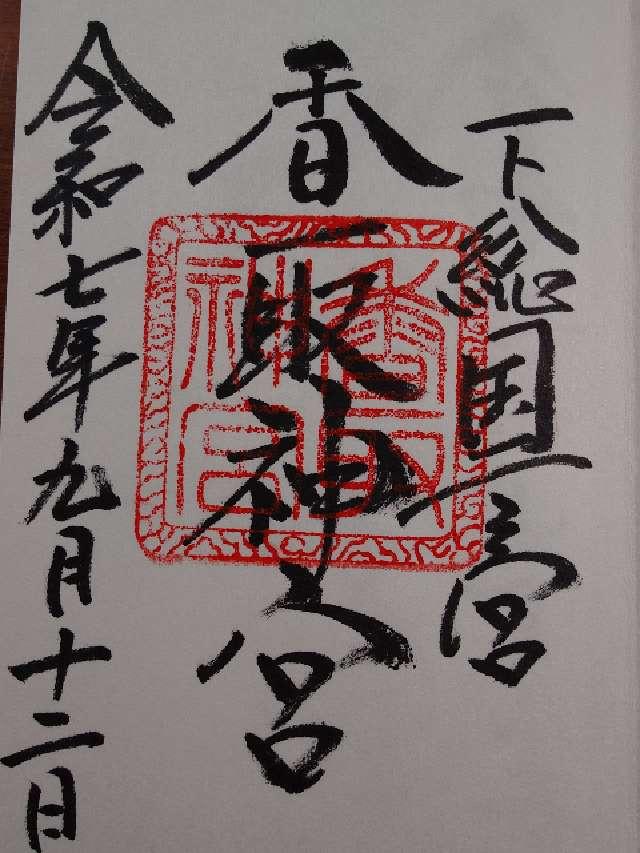 下総国一宮
香取神宮
香取神宮
令和七年九月十二日